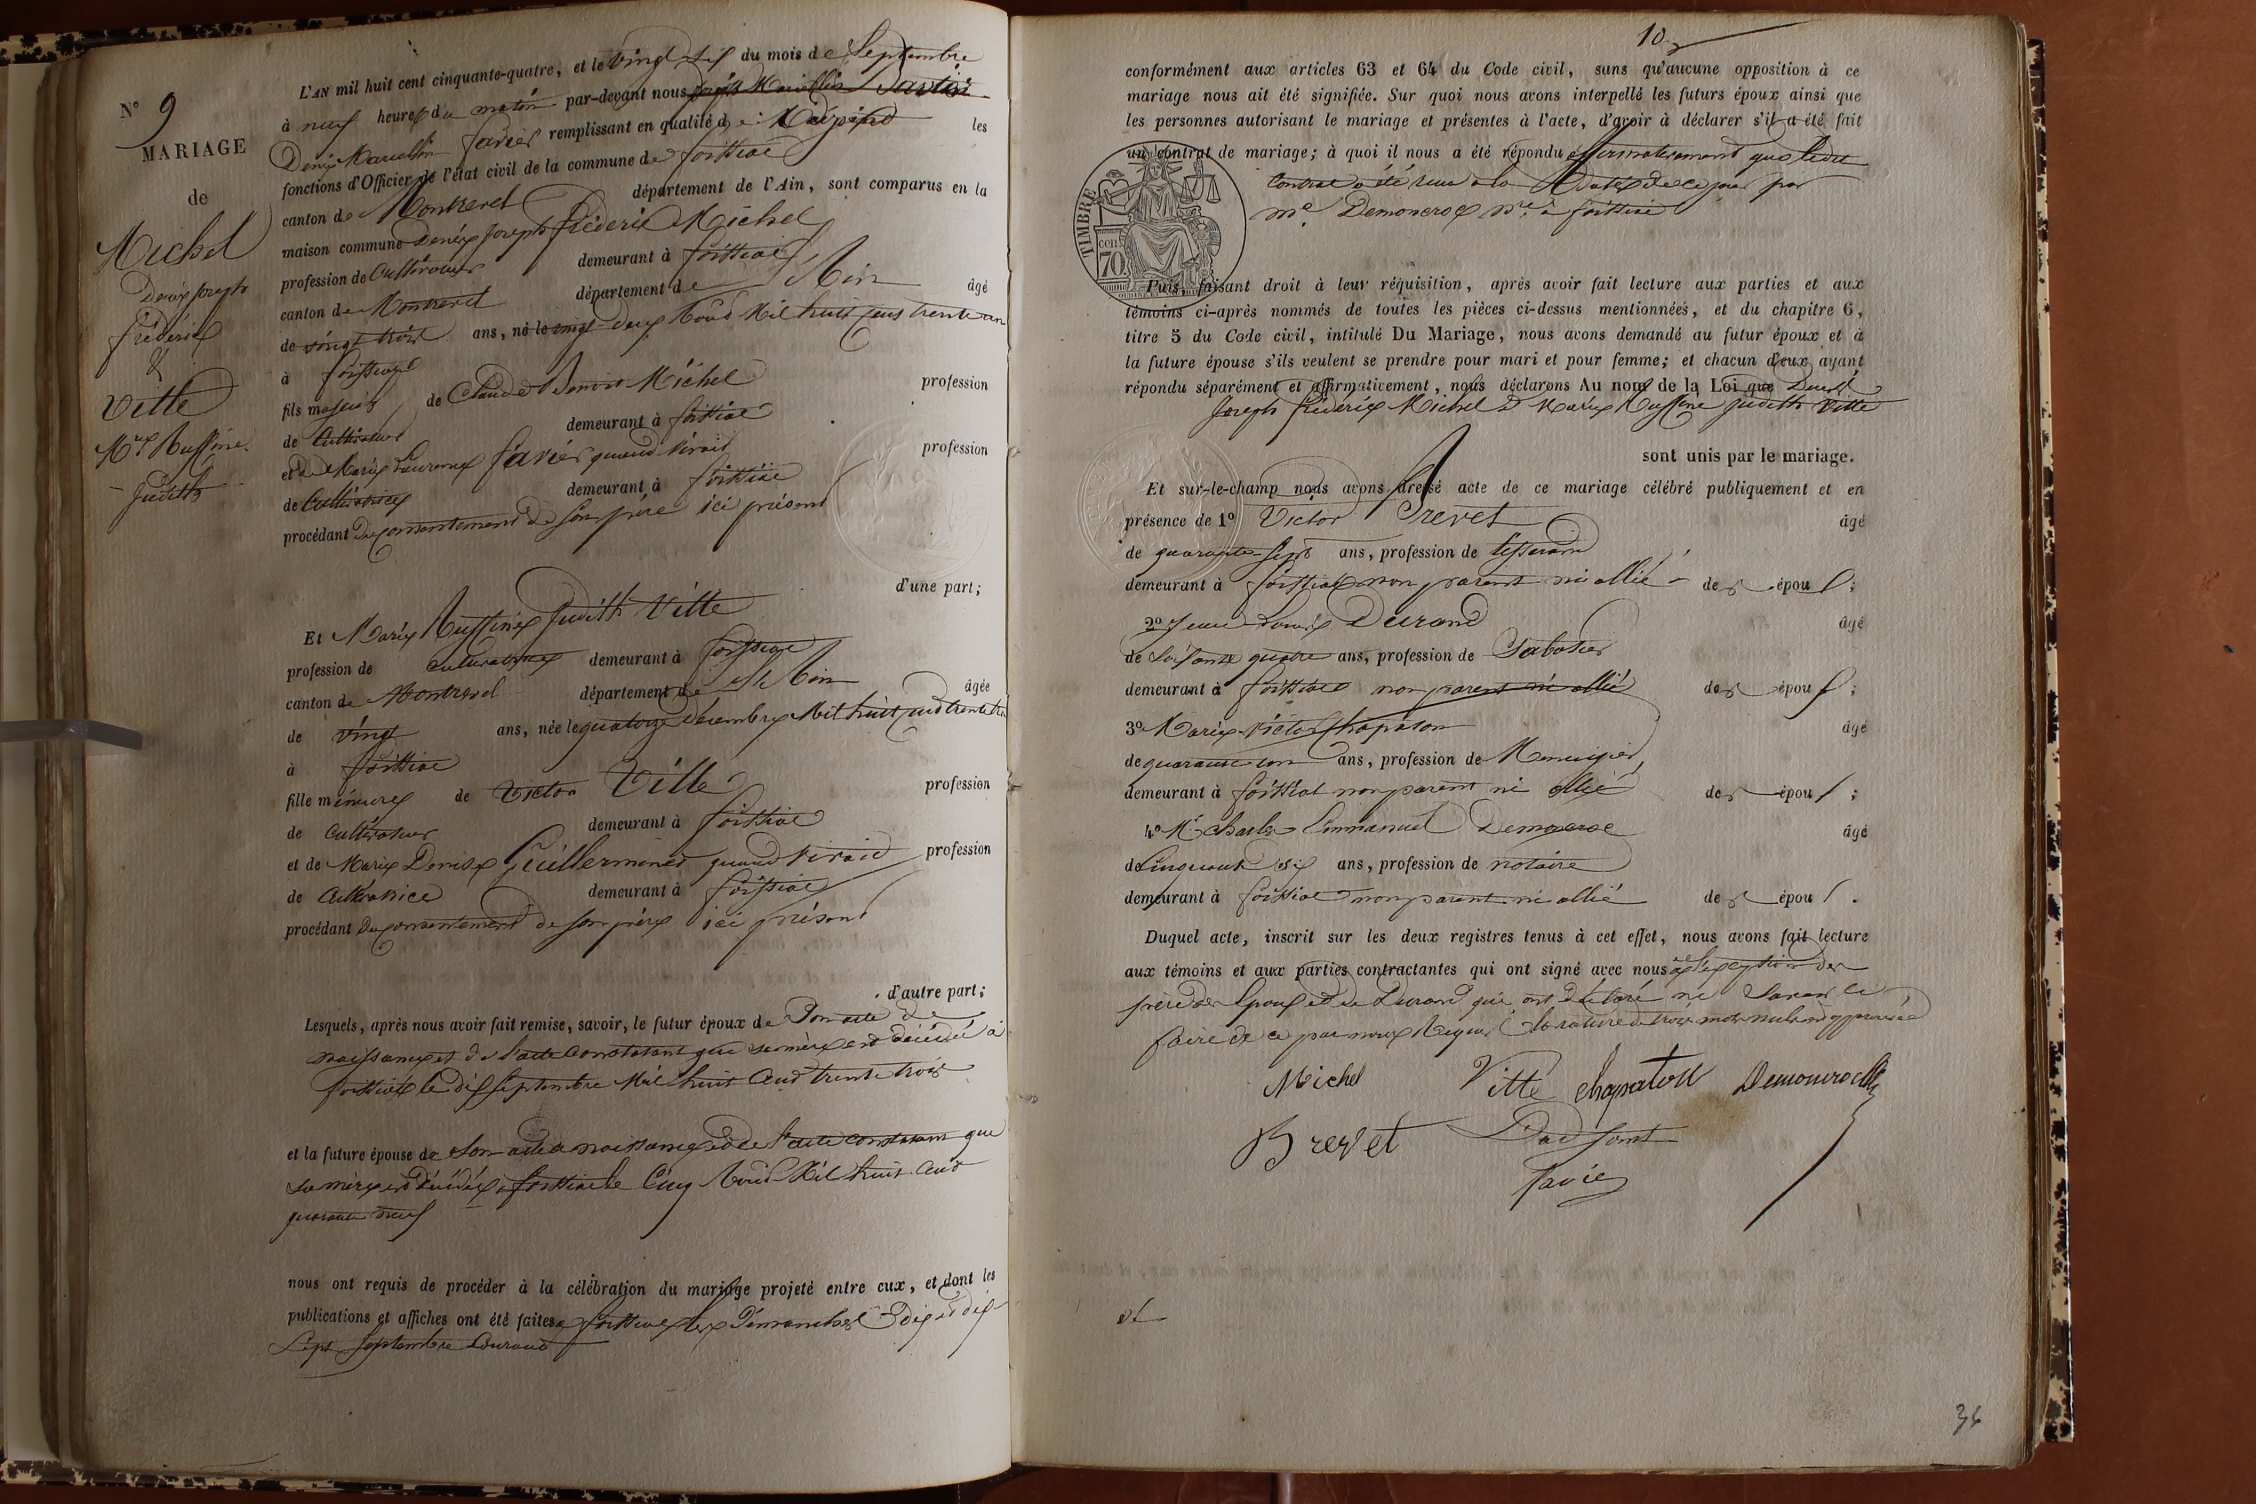 N° 9
MARIAGE
de
Michel
Denis Joseph
fréderic
&
Vitte
M.ie Ruffine
Judith
L'AN mil huit cent cinquante-quatre, et le vingt six du mois de Septembre
à neuf heures du matin par-devant nous
Denis Marcellin favier remplissant en qualité de les
fonctions d'Officier de l'état civil de la commune de foissiat
canton de Montrevel département de l'Ain, sont comparus en la
maison commune Denis Joseph fréderic Michel
profession de Cultivateur demeurant à foissiat
canton de Montrevel département de l'Ain âgé
de vingt trois ans, né le vingt deux Août Mil huit cent trente un
à foissiat
fils majeur de Claude Benoit Michel profession
de Cultivateur demeurant à foissiat
et de Marie Laurence favier quand vivait profession
de Cultivatrice demeurant à foissiat
procédant du consentement de son père ici présent
d'une part;
Et Marie Ruffine Judith Vitte
profession de cultivatrice demeurant à foissiat
canton de Montrevel département de l'Ain âgée
de vingt ans, née le quatorze décembre Mil huit cent trente
à foissiat
fille mineure de Victor Vitte profession
de Cultivateur demeurant à foissiat
et de Marie Denise Guillerminet quand vivait profession
de Cultivatrice demeurant à foissiat
procédant du consentement de son père ici présent
d'autre part;
Lesquels, après nous avoir fait remise, savoir, le futur époux de Son acte de
naissance et de l'acte constatant que sa mère est décédée à
foissiat le dix Septembre Mil huit cent trente trois
et la future épouse de Son acte de naissance et de l'acte constatant que
sa mère est décédée à foissiat le Cinq Août Mil huit cent
quarante neuf
nous ont requis de procéder à la célébration du mariage projeté entre eux, et dont les
publications et affiches ont été faites à foissiat les Dimanches dix et dix
Sept Septembre Courant
10
conformément aux articles 63 et 64 du Code civil, sans qu'aucune opposition à ce
mariage nous ait été signifiée. Sur quoi nous avons interpellé les futurs époux ainsi que
les personnes autorisant le mariage et présentes à l'acte, d'avoir à déclarer s'il a été fait
un contrat de mariage; à quoi il nous a été répondu affirmativement que ledit
Contrat a été reçu à la date de ce jour par
Me Demoncroc Nre à foissiat
TIMBRE
cen
70
Puis, faisant droit à leur réquisition, après avoir fait lecture aux parties et aux
témoins ci-après nommés de toutes les pièces ci-dessus mentionnées, et du chapitre 6,
titre 5 du Code civil, intitulé Du Mariage, nous avons demandé au futur époux et à
la future épouse s'ils veulent se prendre pour mari et pour femme; et chacun d'eux ayant
répondu séparément et affirmativement, nous déclarons Au nom de la Loi que Denis
Joseph fréderic Michel & Marie Ruffine Judith Vitte
sont unis par le mariage.
Et sur-le-champ nous avons dressé acte de ce mariage célébré publiquement et en
présence de 1° Victor Brevet âgé
de quarante Sept ans, profession de tisserand
demeurant à foissiat non parent ni allié des époux;
2° Jean Louis Durand âgé
de Soixante quatre ans, profession de Sabotier
demeurant à foissiat non parent ni allié des époux;
3° Marie Victor Chapaton âgé
de quarante un ans, profession de Menuisier
demeurant à foissiat non parent ni allié des époux;
4° Mr Charles Emmanuel Demoncroc âgé
de Cinquante six ans, profession de notaire
demeurant à foissiat non parent ni allié des époux.
Duquel acte, inscrit sur les deux registres tenus à cet effet, nous avons fait lecture
aux témoins et aux parties contractantes qui ont signé avec nous à l'exception des
pères des Epoux et de Durand qui ont déclaré ne Savoir le
faire de ce par nous Requis la rature de trois mots nuls approuvée
Michel Vitte Chapaton Demoncroc
Brevet L'adjoint
favier
34